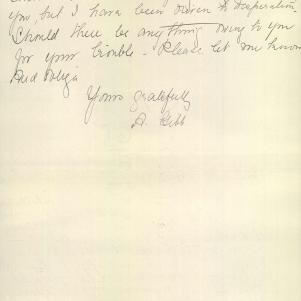 you, but I have been driven to desperation
Should there be anything owing to you
for your trouble - Please let me know
And oblige
Yours gratefully
A. Gibb